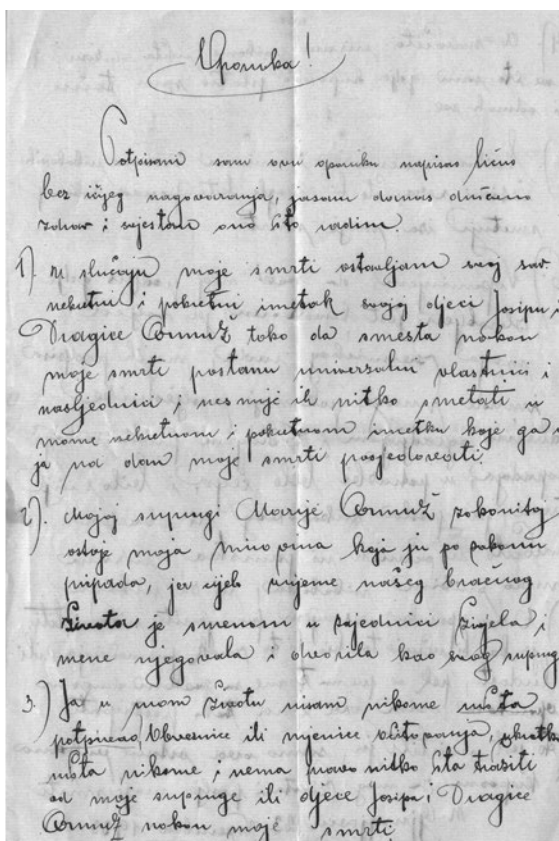 Oporuka!
Potpisani sam ovu oporuku napisao lično
bez ičijeg nagovaranja, jasam danas duševno
zdrav i svjestan ono što radim.
1). U slučaju moje smrti ostavljam svoj sav
nekretni i pokretni imetak svojoj djeci Josipu i
Dragice tako da smesta nakon
moje smrti postanu univerzalni vlastnici i
nasljednici i nesmije ih nitko smetati u
mome nekretnom i pokretnom imetku koje ga
ja na dan moje smrti posjedovati.
2). Mojoj supругi Marije zakonitoj
ostaje moja mirovina koja ju po zakonu
pripada, jer cijelo vrijeme našeg bračnog
života je samnom u zajednici živjela i
mene njegovala i dvorila kao svog supruga
3.) Ja u mom životu nisam nikome ništa
potpisao, Obveznice ili mjenice
ništa nikome i nema pravo nitko šta tražiti
od moje supruge ili djece Josipa i Dragice
nakon moje smrti